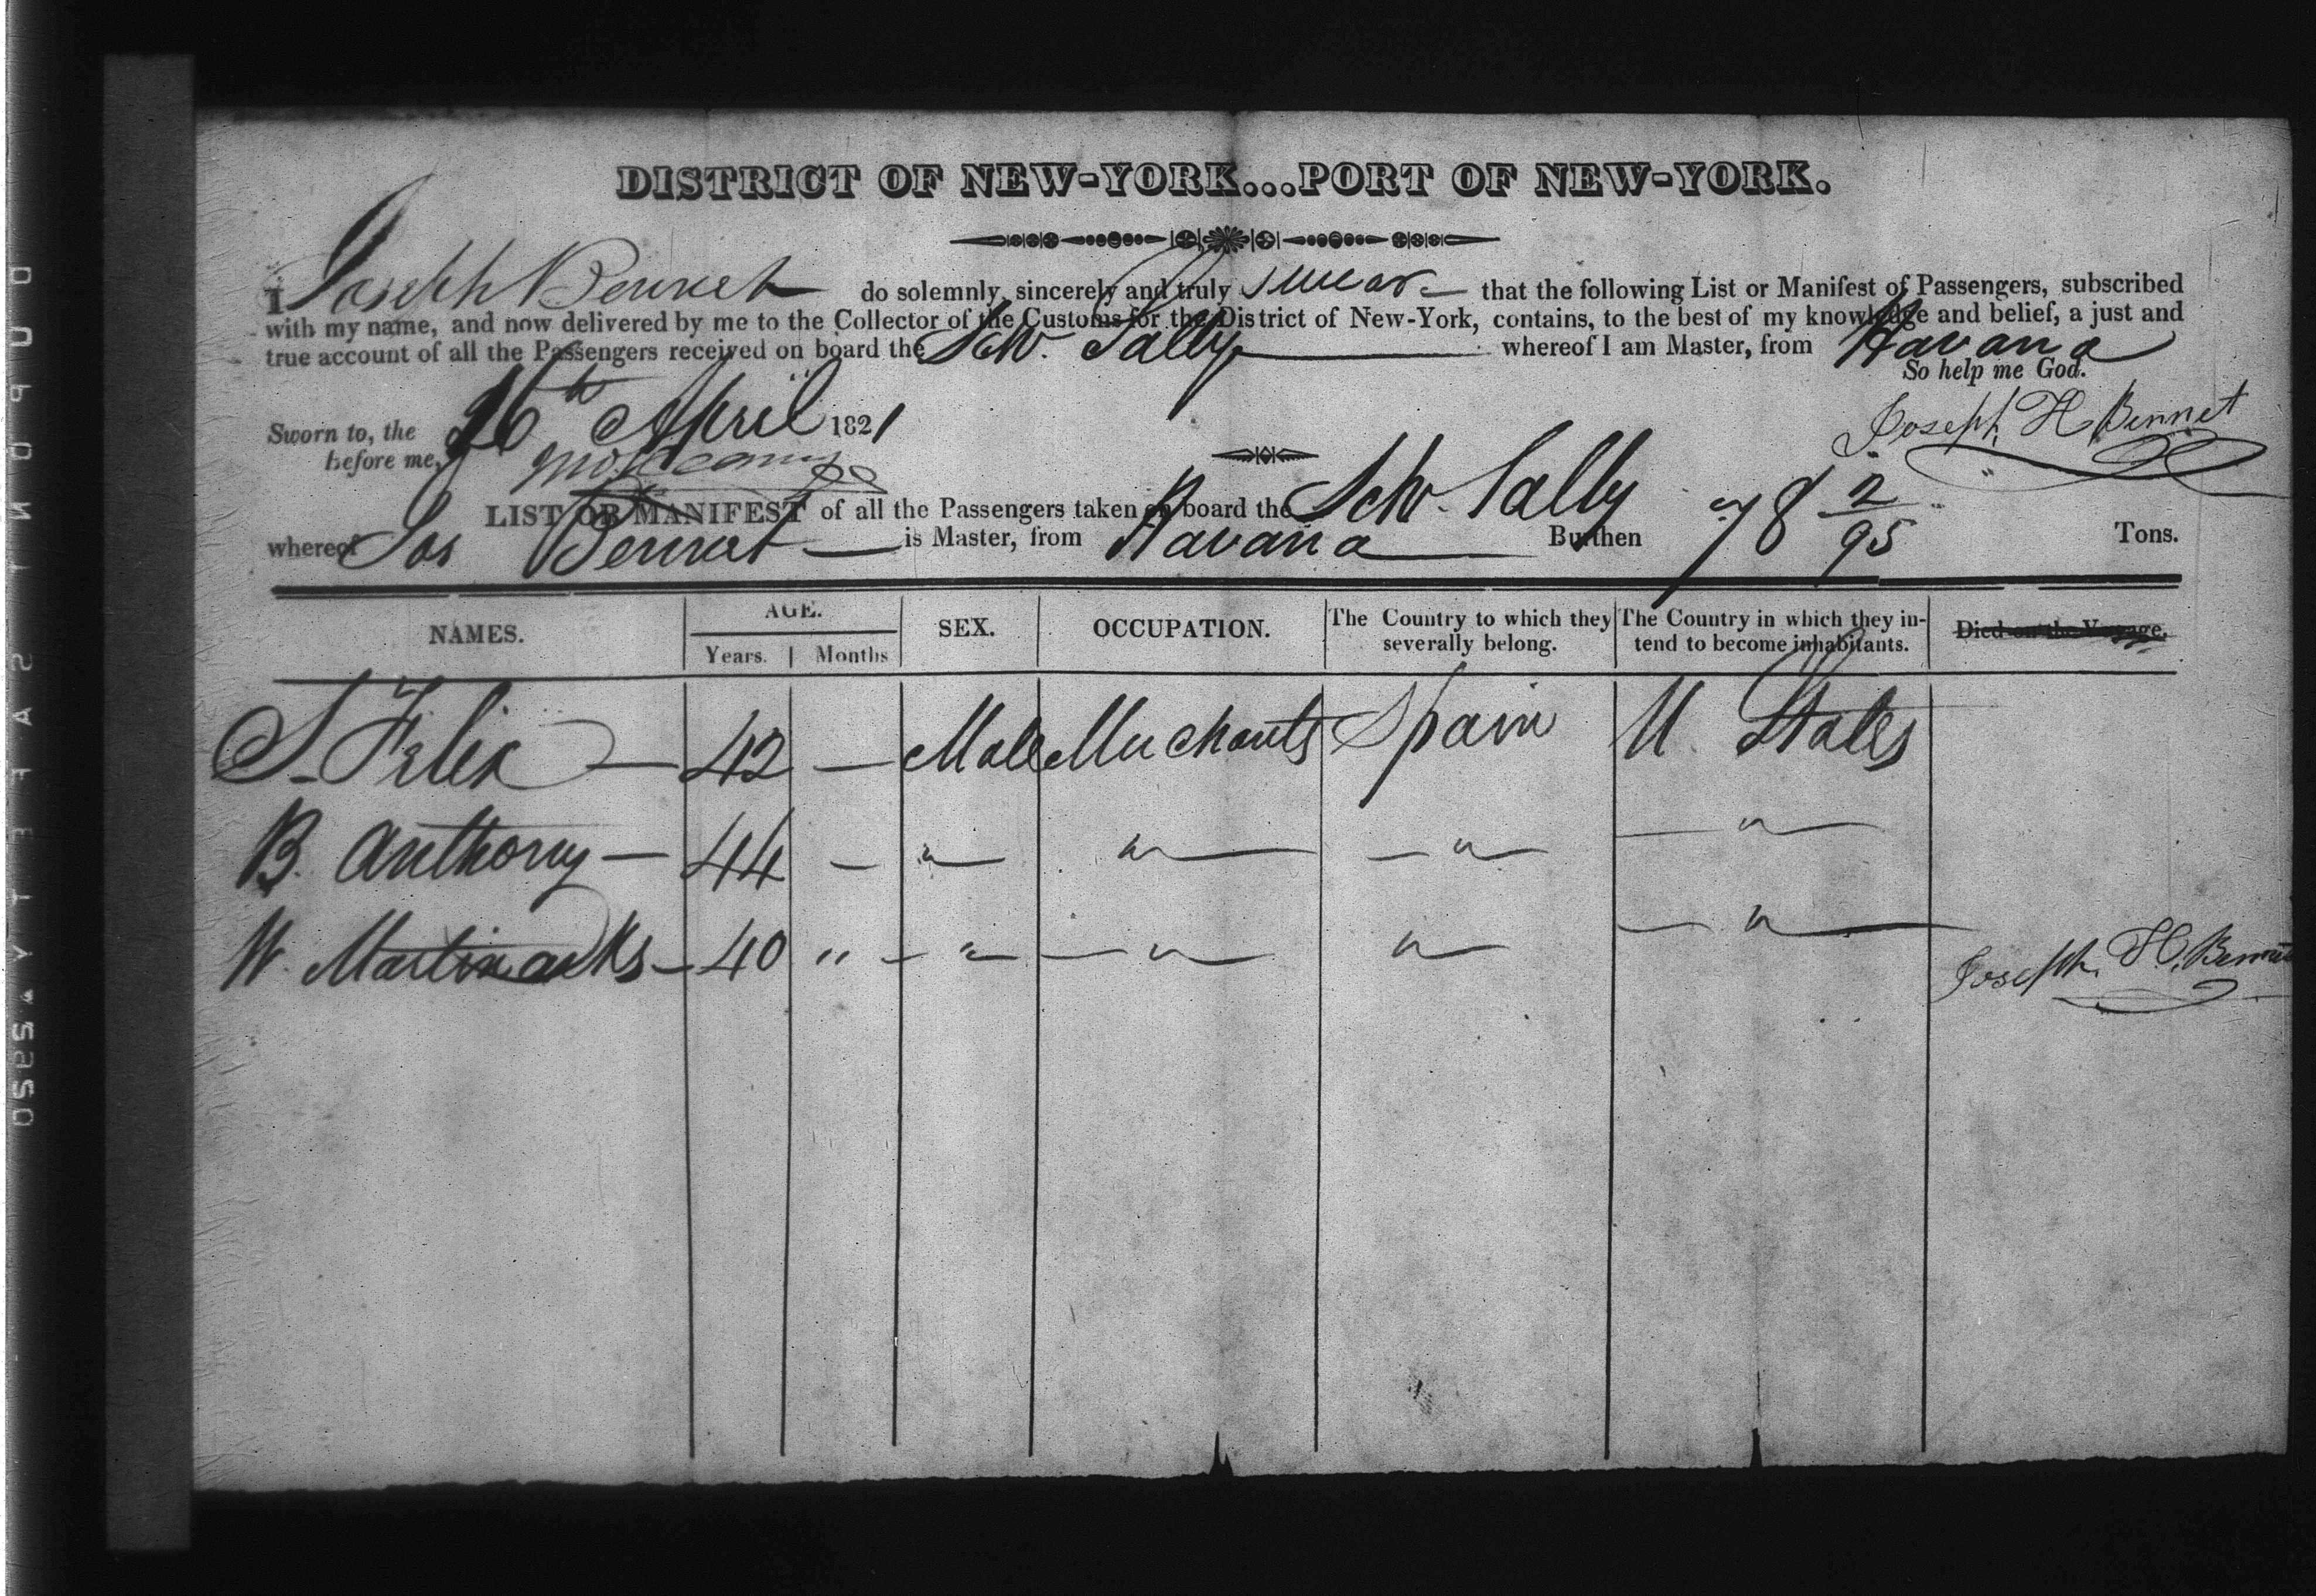 DISTRICT OF NEW-YORK...PORT OF NEW-YORK.
I Joseph Bennet do solemnly, sincerely and truly swear that the following List or Manifest of Passengers, subscribed
with my name, and now delivered by me to the Collector of the Customs for the District of New-York, contains, to the best of my knowledge and belief, a just and
true account of all the Passengers received on board the Schr. Sally whereof I am Master, from Havana
So help me God.
Sworn to, the 26th April 1821
Joseph H Bennet
before me,
LIST OR MANIFEST of all the Passengers taken on board the Schr. Sally
whereof Jos Bennet is Master, from Havana Burthen 78 2/95 Tons.
NAMES. AGE. Years. Months SEX. OCCUPATION. The Country to which they severally belong. The Country in which they intend to become inhabitants. Died on the Voyage.
S. Felix — 42 — Male Merchants Spain U. States
B. Anthony — 44 — " " " "
W. — 40 " " " " "
Joseph H. Bennet
SAFETY